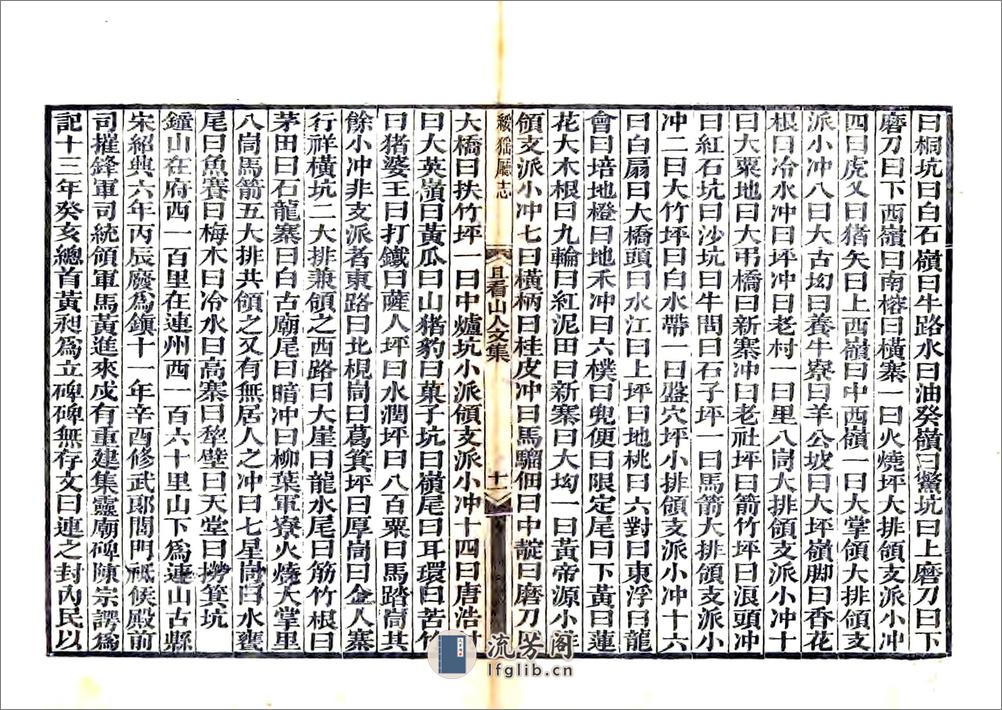 曰桐坑曰白石嶺曰牛路水曰油癸嶺曰鱉坑曰上磨刀曰下
磨刀曰下西嶺曰南榕曰橫寨一曰火燒坪大排領支派小冲
四曰虎叉曰猪矢曰上西嶺曰中西嶺一曰大掌嶺大排領支
派小冲八曰大古坳曰養牛寮曰羊公坡曰大坪嶺脚曰香花
根曰冷水冲曰坪冲曰老村一曰里八峝大排領支派小冲十
曰大粟地曰大弔橋曰新寨冲曰老社坪曰箭竹坪曰浪頭冲
曰紅石坑曰沙坑曰牛閂曰石子坪一曰馬箭大排領支派小
冲二曰大竹坪曰水帶一曰盤穴坪小排領支派小冲十六
曰白扇曰大橋頭曰水江曰上坪曰地桃曰六對曰東浮曰龍
會曰培地橙曰地禾冲曰六樸曰兜便曰限定尾曰下黃曰蓮
花大木根曰九輪曰紅泥田曰新寨曰大坳一曰黃帝源小排
領支派小冲七曰橫柄曰桂皮冲曰馬騮佃曰中靛曰磨刀坑曰
綏猺廳志
且看山人文集
十一
大橋曰扶竹坪一曰中爐坑小派領支派小冲十四曰唐浩
曰大英嶺曰黃瓜曰山猪豹曰菓子坑曰嶺尾曰耳環曰苦竹
曰猪婆王曰打鐵曰薩人坪曰水潤坪曰八百粟曰馬踏峝共
餘小冲非支派者東路曰北梘峝曰葛箕坪曰厚峝曰金人寨
行祥橫坑二大排兼領之西路曰大崖曰龍水尾曰筋竹根曰
茅田曰石龍寨曰白古廟尾曰暗冲曰柳葉軍寮火燒大掌里
八峝馬箭五大排共領之又有無居人之冲曰七星峝曰水甕
尾曰魚賽曰梅木曰冷水曰高寨曰犂壁曰天堂曰撈箕坑
鐘山在府西一百里在連州西一百六十里山下爲連山古縣
宋紹興六年丙辰廢爲鎮十一年辛酉修武郎閤門祗候殿前
司摧鋒軍司統領軍馬黃進來戍有重建集靈廟碑陳宗諤爲
記十三年癸亥總首黃昶爲立碑碑無存文曰連之封內民以
流芳阁
lfglib.cn